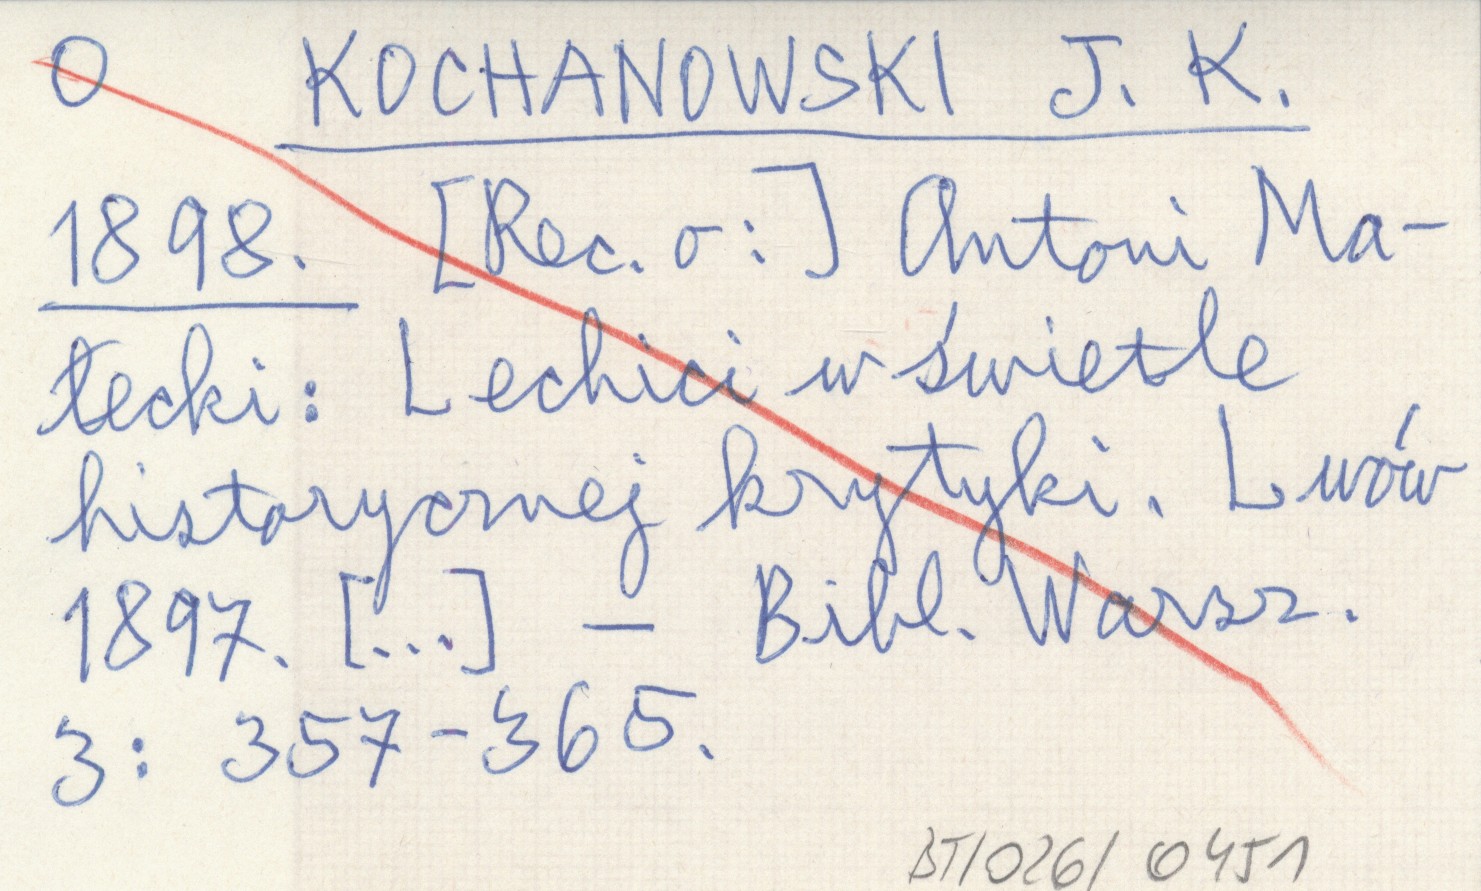 O KOCHANOWSKI J. K.
1898. [Rec. o:] Antoni Ma-
łecki: Lechici w świetle
historycznej krytyki. Lwów
1897. [...] — Bibl. Warsz.
3: 357-365.
BT/026/0451